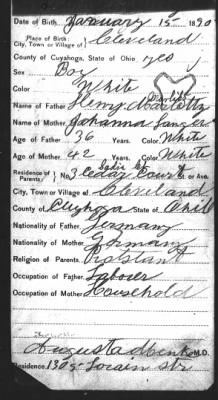 Date of Birth, January 15 1890
Place of Birth:
City, Town or Village of Cleveland
County of Cuyahoga, State of Ohio, yes
Sex Boy
Color White
Name of Father Henry
Name of Mother Johanna
Age of Father 36 Years. Color White
Age of Mother 42 Years. Color White
Residence of Parents No 3 Cedar Court St. or Ave.
City, Town or Village of Cleveland
County of Cuyhoga State of Ohio
Nationality of Father Jermany
Nationality of Mother Jermany
Religion of Parents
Occupation of Father Laborer
Occupation of Mother Household
Augusta M.D.
Residence 1305 Lorain str